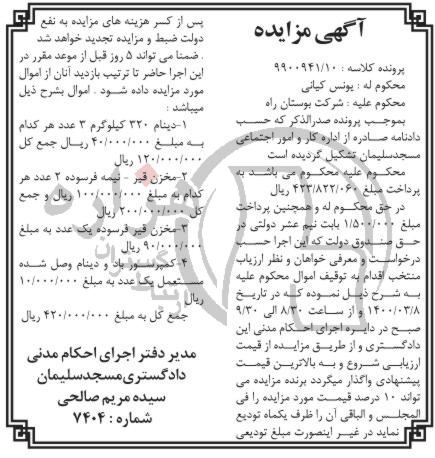 آگهی مزایده
پرونده کلاسه : ۹۹۰۰۹۴۱/۱۰
محکوم له : یونس کیانی
محکوم علیه : شرکت بوستان راه
بموجب پرونده صدرالذکر که حسب
دادنامه صادره از اداره کار و امور اجتماعی
مسجدسلیمان تشکیل گردیده است
محکوم علیه محکوم می باشد به
پرداخت مبلغ ۴۲۳/۸۲۲/۰۶۰ ریال
در حق محکوم له و همچنین پرداخت
مبلغ ۱/۵۰۰/۰۰۰ بابت نیم عشر دولتی در
حق صندوق دولت که این اجرا حسب
درخواست و معرفی خواهان و نظر ارزیاب
منتخب اقدام به توقیف اموال محکوم علیه
به شرح ذیل نموده که در تاریخ
۱۴۰۰/۰۳/۸ و از ساعت ۸/۳۰ الی ۹/۳۰
صبح در دایره اجرای احکام مدنی این
دادگستری و از طریق مزایده از قیمت
ارزیابی شروع و به بالاترین قیمت
پیشنهادی واگذار میگردد برنده مزایده می
تواند ۱۰ درصد قیمت مورد مزایده را فی
المجلس و الباقی آن را ظرف یکماه تودیع
نماید در غیر اینصورت مبلغ تودیعی
پس از کسر هزینه های مزایده به نفع
دولت ضبط و مزایده تجدید خواهد شد
. ضمنا می تواند ۵ روز قبل از موعد مقرر در
این اجرا حاضر تا ترتیب بازدید آنان از اموال
مورد مزایده داده شود . اموال بشرح ذیل
میباشد :
۱-دینام ۳۲۰ کیلوگرم ۳ عدد هر کدام
به مبلغ ۴۰/۰۰۰/۰۰۰ ریال جمع کل
۱۲۰/۰۰۰/۰۰۰ ریال
۲-مخزن قیر – نیمه فرسوده ۲ عدد هر
کدام به مبلغ ۱۰۰/۰۰۰/۰۰۰ ریال و جمع
کل ۲۰۰/۰۰۰/۰۰۰ ریال
۳-مخزن قیر فرسوده یک عدد به مبلغ
۹۰/۰۰۰/۰۰۰ ریال
۴-کمپرسور باد و دینام وصل شده
مستعمل یک عدد به مبلغ ۱۰/۰۰۰/۰۰۰
ریال
جمع کل به مبلغ ۴۲۰/۰۰۰/۰۰۰ ریال
مدیر دفتر اجرای احکام مدنی
دادگستری مسجدسلیمان
سیده مریم صالحی
شماره : ۷۴۰۴